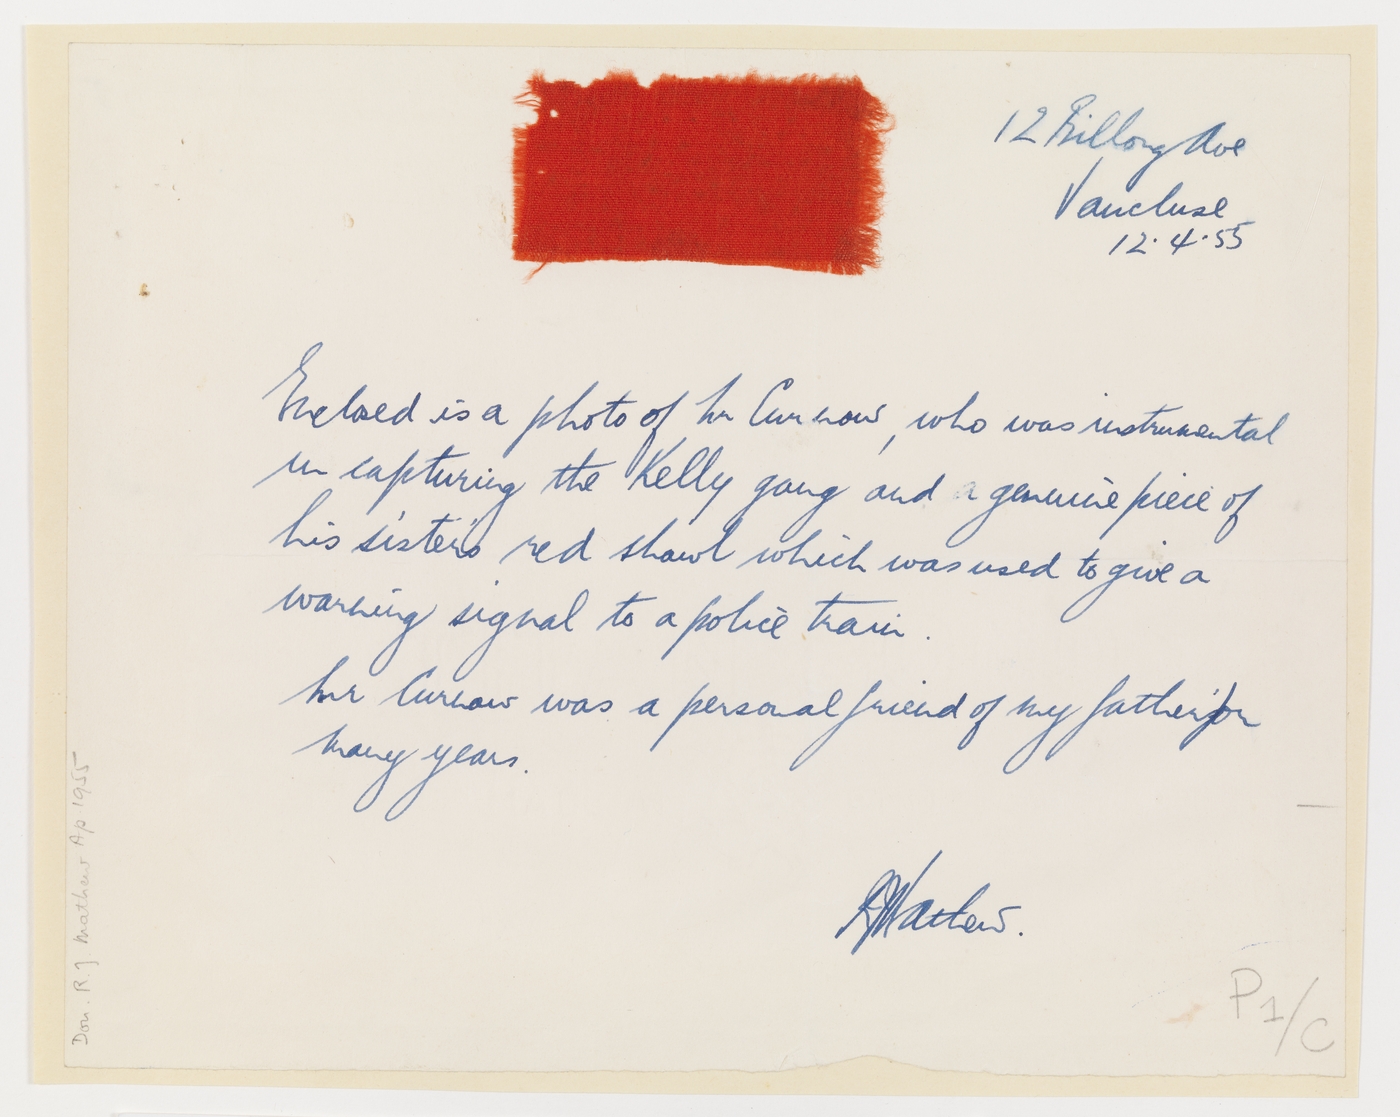 12 Billong Ave
Vaucluse
12.4.55
Enclosed is a photo of Mr Curnow, who was instrumental
in capturing the Kelly gang and a genuine piece of
his sister's red shawl which was used to give a
warning signal to a police train.
Mr Curnow was a personal friend of my father for
many years.
RJMathew.
P1/C
Don. R.J. Mathew Ap. 1955